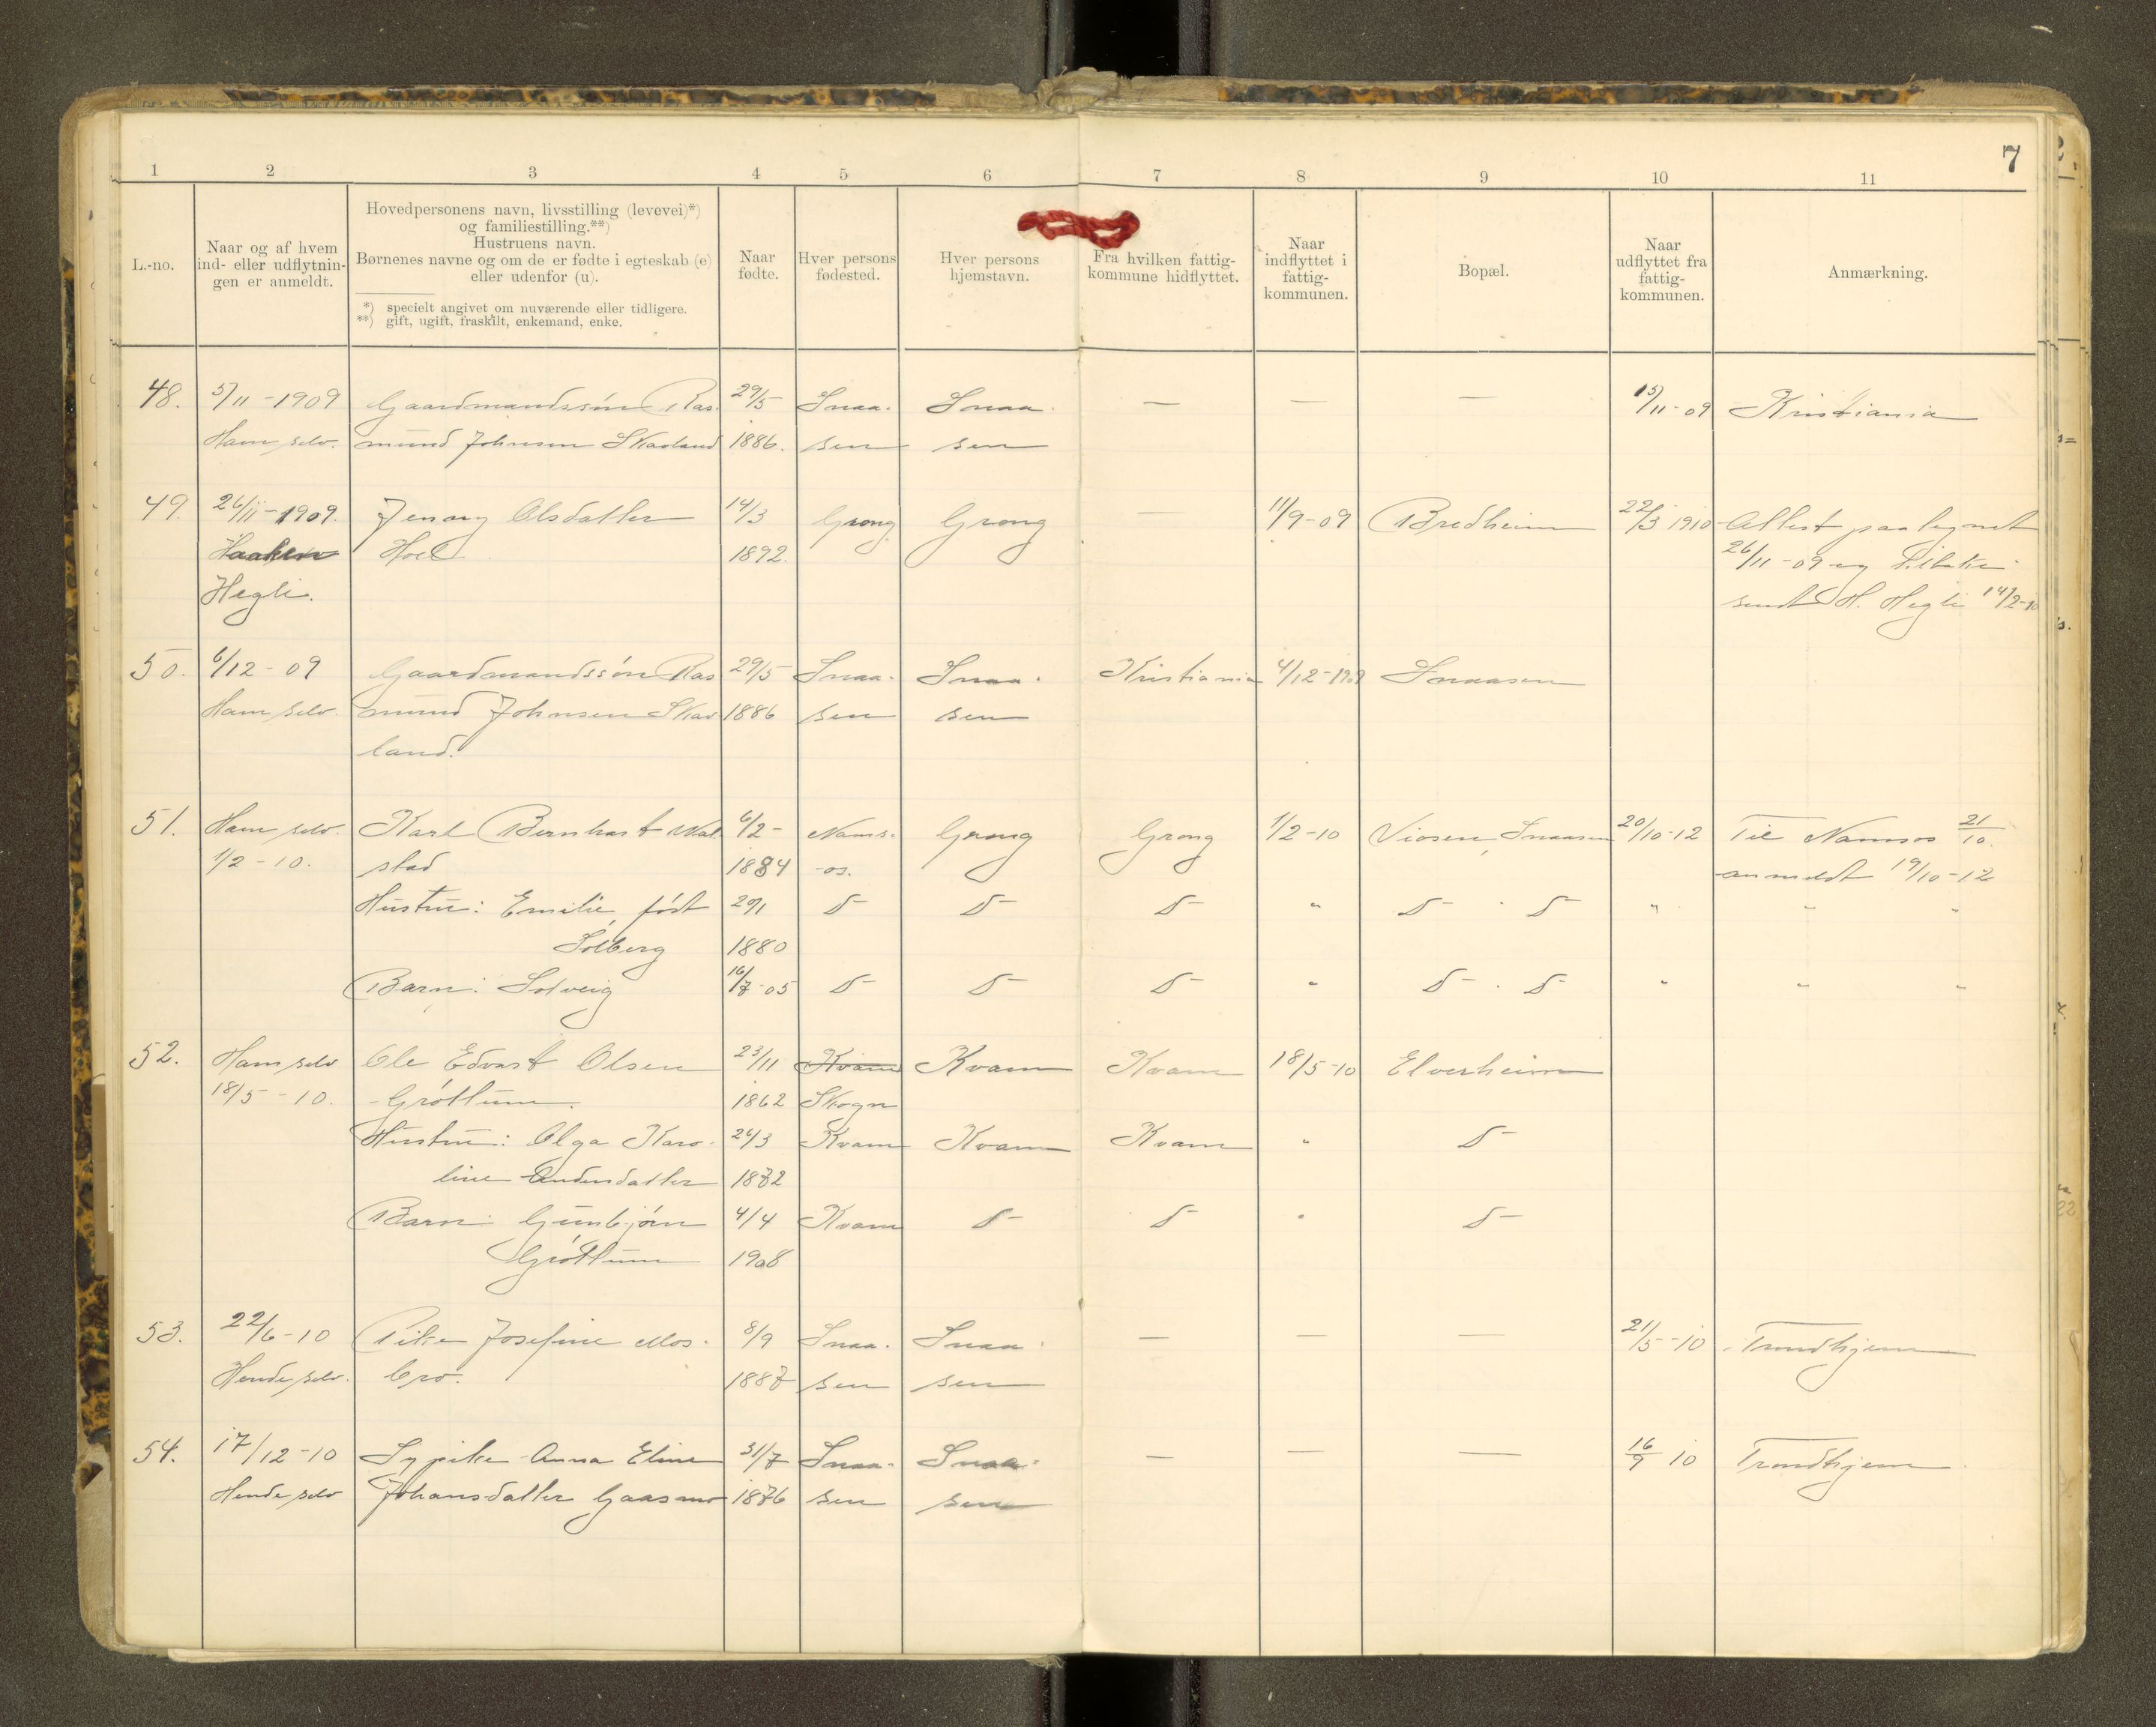 7
1 2 3 4 5 6 7 8 9 10 11
L.-no.
Naar og af hvem
ind- eller udflytnin-
gen er anmeldt.
Hovedpersonens navn, livsstilling (levevei)*)
og familiestilling.**)
Hustruens navn.
Børnenes navne og om de er fødte i egteskab (e)
eller udenfor (u).
*) specielt angivet om nuværende eller tidligere.
**) gift, ugift, fraskilt, enkemand, enke.
Naar
fødte.
Hver persons
fødested.
Hver persons
hjemstavn.
Fra hvilken fattig-
kommune hidflyttet.
Naar
indflyttet i
fattig-
kommunen.
Bopæl.
Naar
udflyttet fra
fattig-
kommunen.
Anmærkning.
48. 5/11-1909 Gaardmandssøn Ras 29/5 Snaa- Snaa- — — — 15/11-09 Kristiania
Ham selv. mund Johnsen Skavland 1886. sen sen
49. 26/11-1909. Jenny Olsdatter 14/3 Grong Grong — 11/9-09 Bredheim 22/3 1910 Attest paategnet
Haaken Hoel 1892. 26/11-09 og tilbake-
Hegli. sendt H. Hegli 14/2-10
50. 6/12-09 Gaardmandssøn Ras 29/5 Snaa- Snaa- Kristiania 4/12-1909 Snaasen
Ham selv. mund Johnsen Skav 1886 sen sen
land.
51. Ham selv. Karl Bernhart Wal 6/2- Nams- Grong Grong 1/2-10 Viosen, Snaasen 20/10-12 Til Namsos 21/10.
1/2-10. stad 1884 os. anmeldt 19/10-12
Hustru: Emilie, født 29/1 D- D- D- " D- · D- " " "
Solberg 1880
Barn: Solveig 16/7-05 D- D- D- " D- · D- " " "
52. Ham selv Ole Edvart Olsen 23/11 Kvam Kvam Kvam 18/5-10 Elverheim
18/5-10. Grøttum. 1862 Skogn
Hustru: Olga Karo- 24/3 Kvam Kvam Kvam " D-
line Andersdatter 1872
Barn: Gunbjørn 4/4 Kvam D- D- " D-
Grøttum 1908
53. 22/6-10 Pike Josefine Mos- 8/9 Snaa- Snaa- — — — 21/5-10 Trondhjem
Hende selv. bro. 1887 sen sen
54. 17/12-10 Sypike Anna Eline 31/7 Snaa- Snaa- — — — 16/9 10 Trondhjem
Hende selv Johansdatter Gaasmo 1876 sen sen